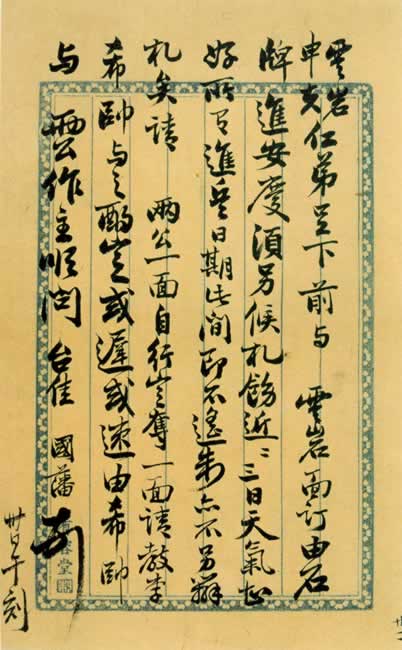 雲岩
申夫仁弟足下前与 雲岩面訂由石
牌進安慶須另候札飭近二三日天氣甚
好所有進兵日期此間即不遙制亦不另辦
札矣請 兩公一面自行定奪一面請教李
希帥与之酌定或遲或速由希帥
与 兩公作主順問 台佳 國藩
卅日午刻